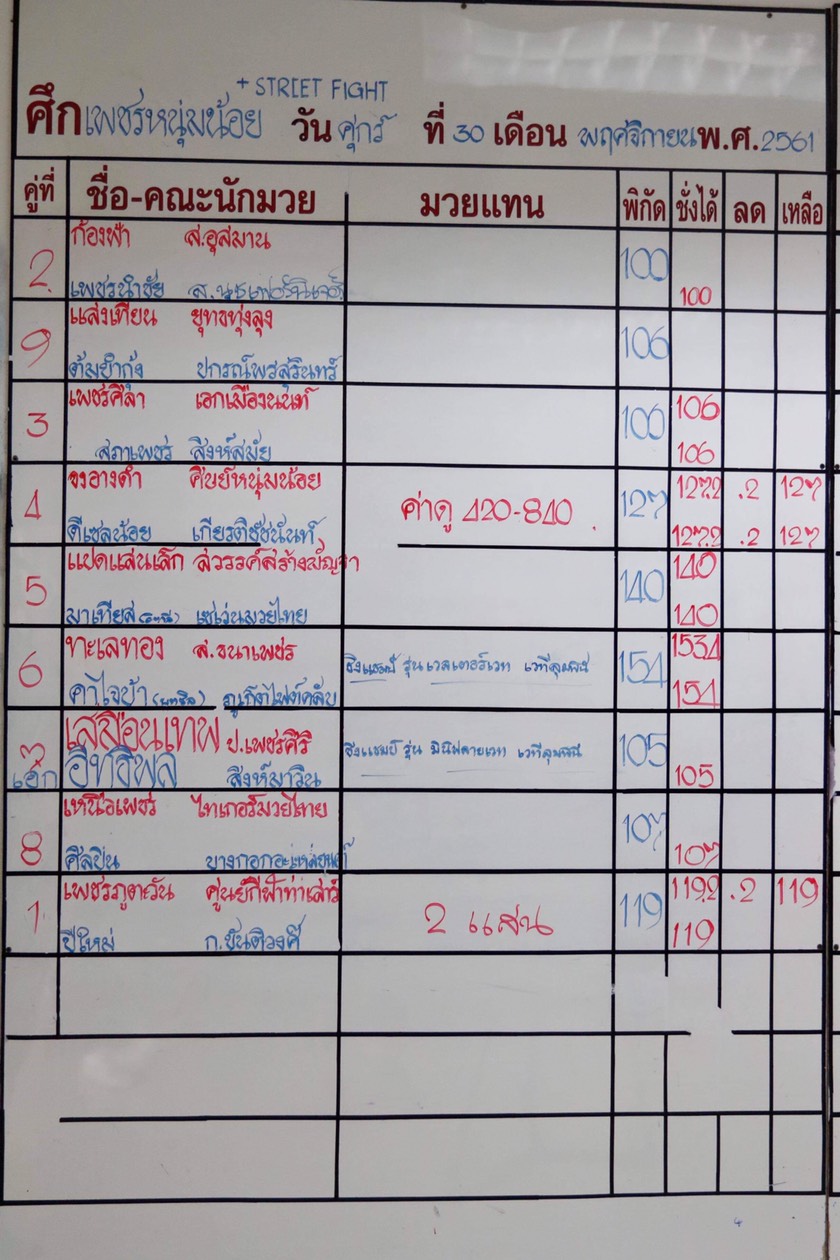 + STREET FIGHT
ศึกเพชรหนุ่มน้อย วัน ศุกร์ ที่ 30 เดือน พฤศจิกายน พ.ศ. 2561
คู่ที่ ชื่อ-คณะนักมวย มวยแทน พิกัด ชั่งได้ ลด เหลือ
2 ก้องฟ้า ส.อุสมาน 100
เพชรนำชัย 100
9 แสงเทียน ยุทธทุ่งลุง 106
ต้มยำกุ้ง ปกรณ์พรสุรินทร์
3 เพชรศิลา เอกเมืองนนท์ 106
สภาเพชร สิงห์สมัย 106
4 จงอางดำ ศิษย์หนุ่มน้อย ค่าดู 420-840 127 127.2 .2 127
ดีเซลน้อย เกียรติชัชนันท์ 127.2 .2 127
5 แปดแสนเล็ก สวรรค์สร้างปัญจา 140 140
มาเทียส เซเว่นมวยไทย 140
6 ทะเลทอง ส.ธนาเพชร ชิงแชมป์ รุ่น เวลเตอร์เวท เวทีลุมพินี 154 153.4
คาไจบ้า (บราซิล) ภูเก็ตไฟต์คลับ 154
7 เสมือนเทพ ป.เพชรศิริ ชิงแชมป์ รุ่น มินิฟลายเวท เวทีลุมพินี 105
เอก อิทธิพล สิงห์มาวิน 105
8 เหนือเพชร ไทเกอร์มวยไทย 107
ศิลปิน 107
1 เพชรภูตะวัน ศูนย์กีฬาท่าเสาร์ 2 แสน 119 119.2 .2 119
ปีใหม่ ก.ขันติวงศ์ 119